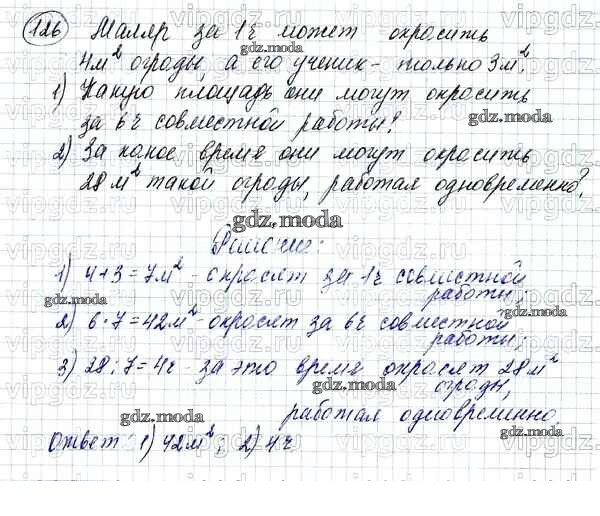 126 Маляр за 1ч может окрасить
4м² ограды, а его ученик - только 3м².
1) Какую площадь они могут окрасить
за 6ч совместной работы?
2) За какое время они могут окрасить
28м² такой ограды, работая одновременно?
gdz.moda
Решение:
1) 4+3=7м² - окрасят за 1ч совместной
работы;
2) 6·7=42м² - окрасят за 6ч совместной
работы;
3) 28:7=4ч - за это время окрасят 28м²
ограды,
работая одновременно.
Ответ: 1) 42м²; 2) 4ч